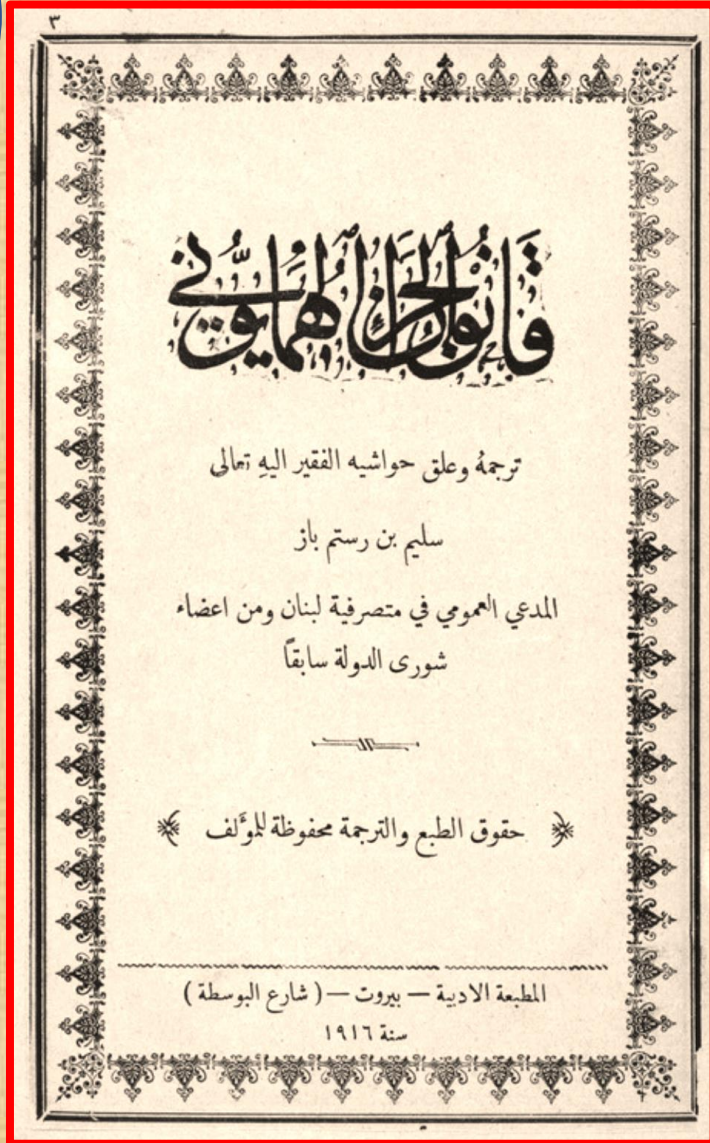 ٣
قَانُونُ الجَزَاءِ الهُمَايُوُنيّ
ترجمهُ وعلق حواشيه الفقير اليهِ تعالى
سليم بن رستم باز
المدعي العمومي في متصرفية لبنان ومن اعضاء
شورى الدولة سابقاً
حقوق الطبع والترجمة محفوظة للمؤلف
المطبعة الادبية — بيروت — ( شارع البوسطة )
سنة ١٩١٦